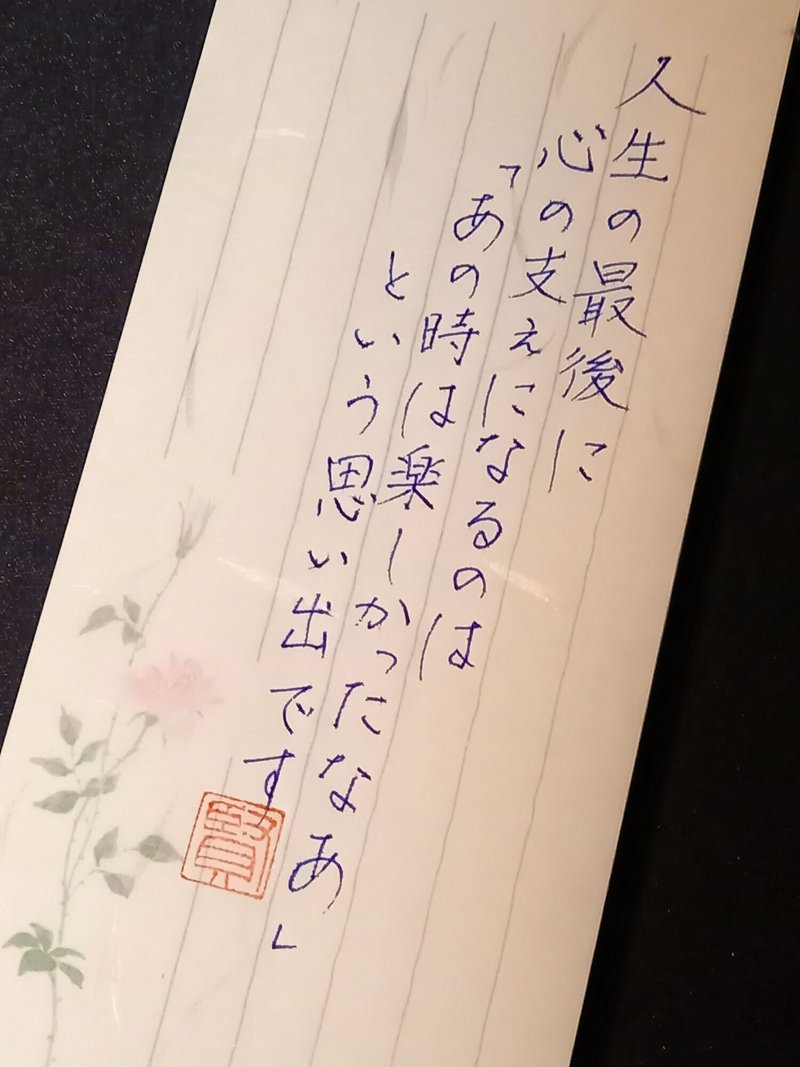 人生の最後に
心の支えになるのは
「あの時は楽しかったなあ」
という思い出です
賢